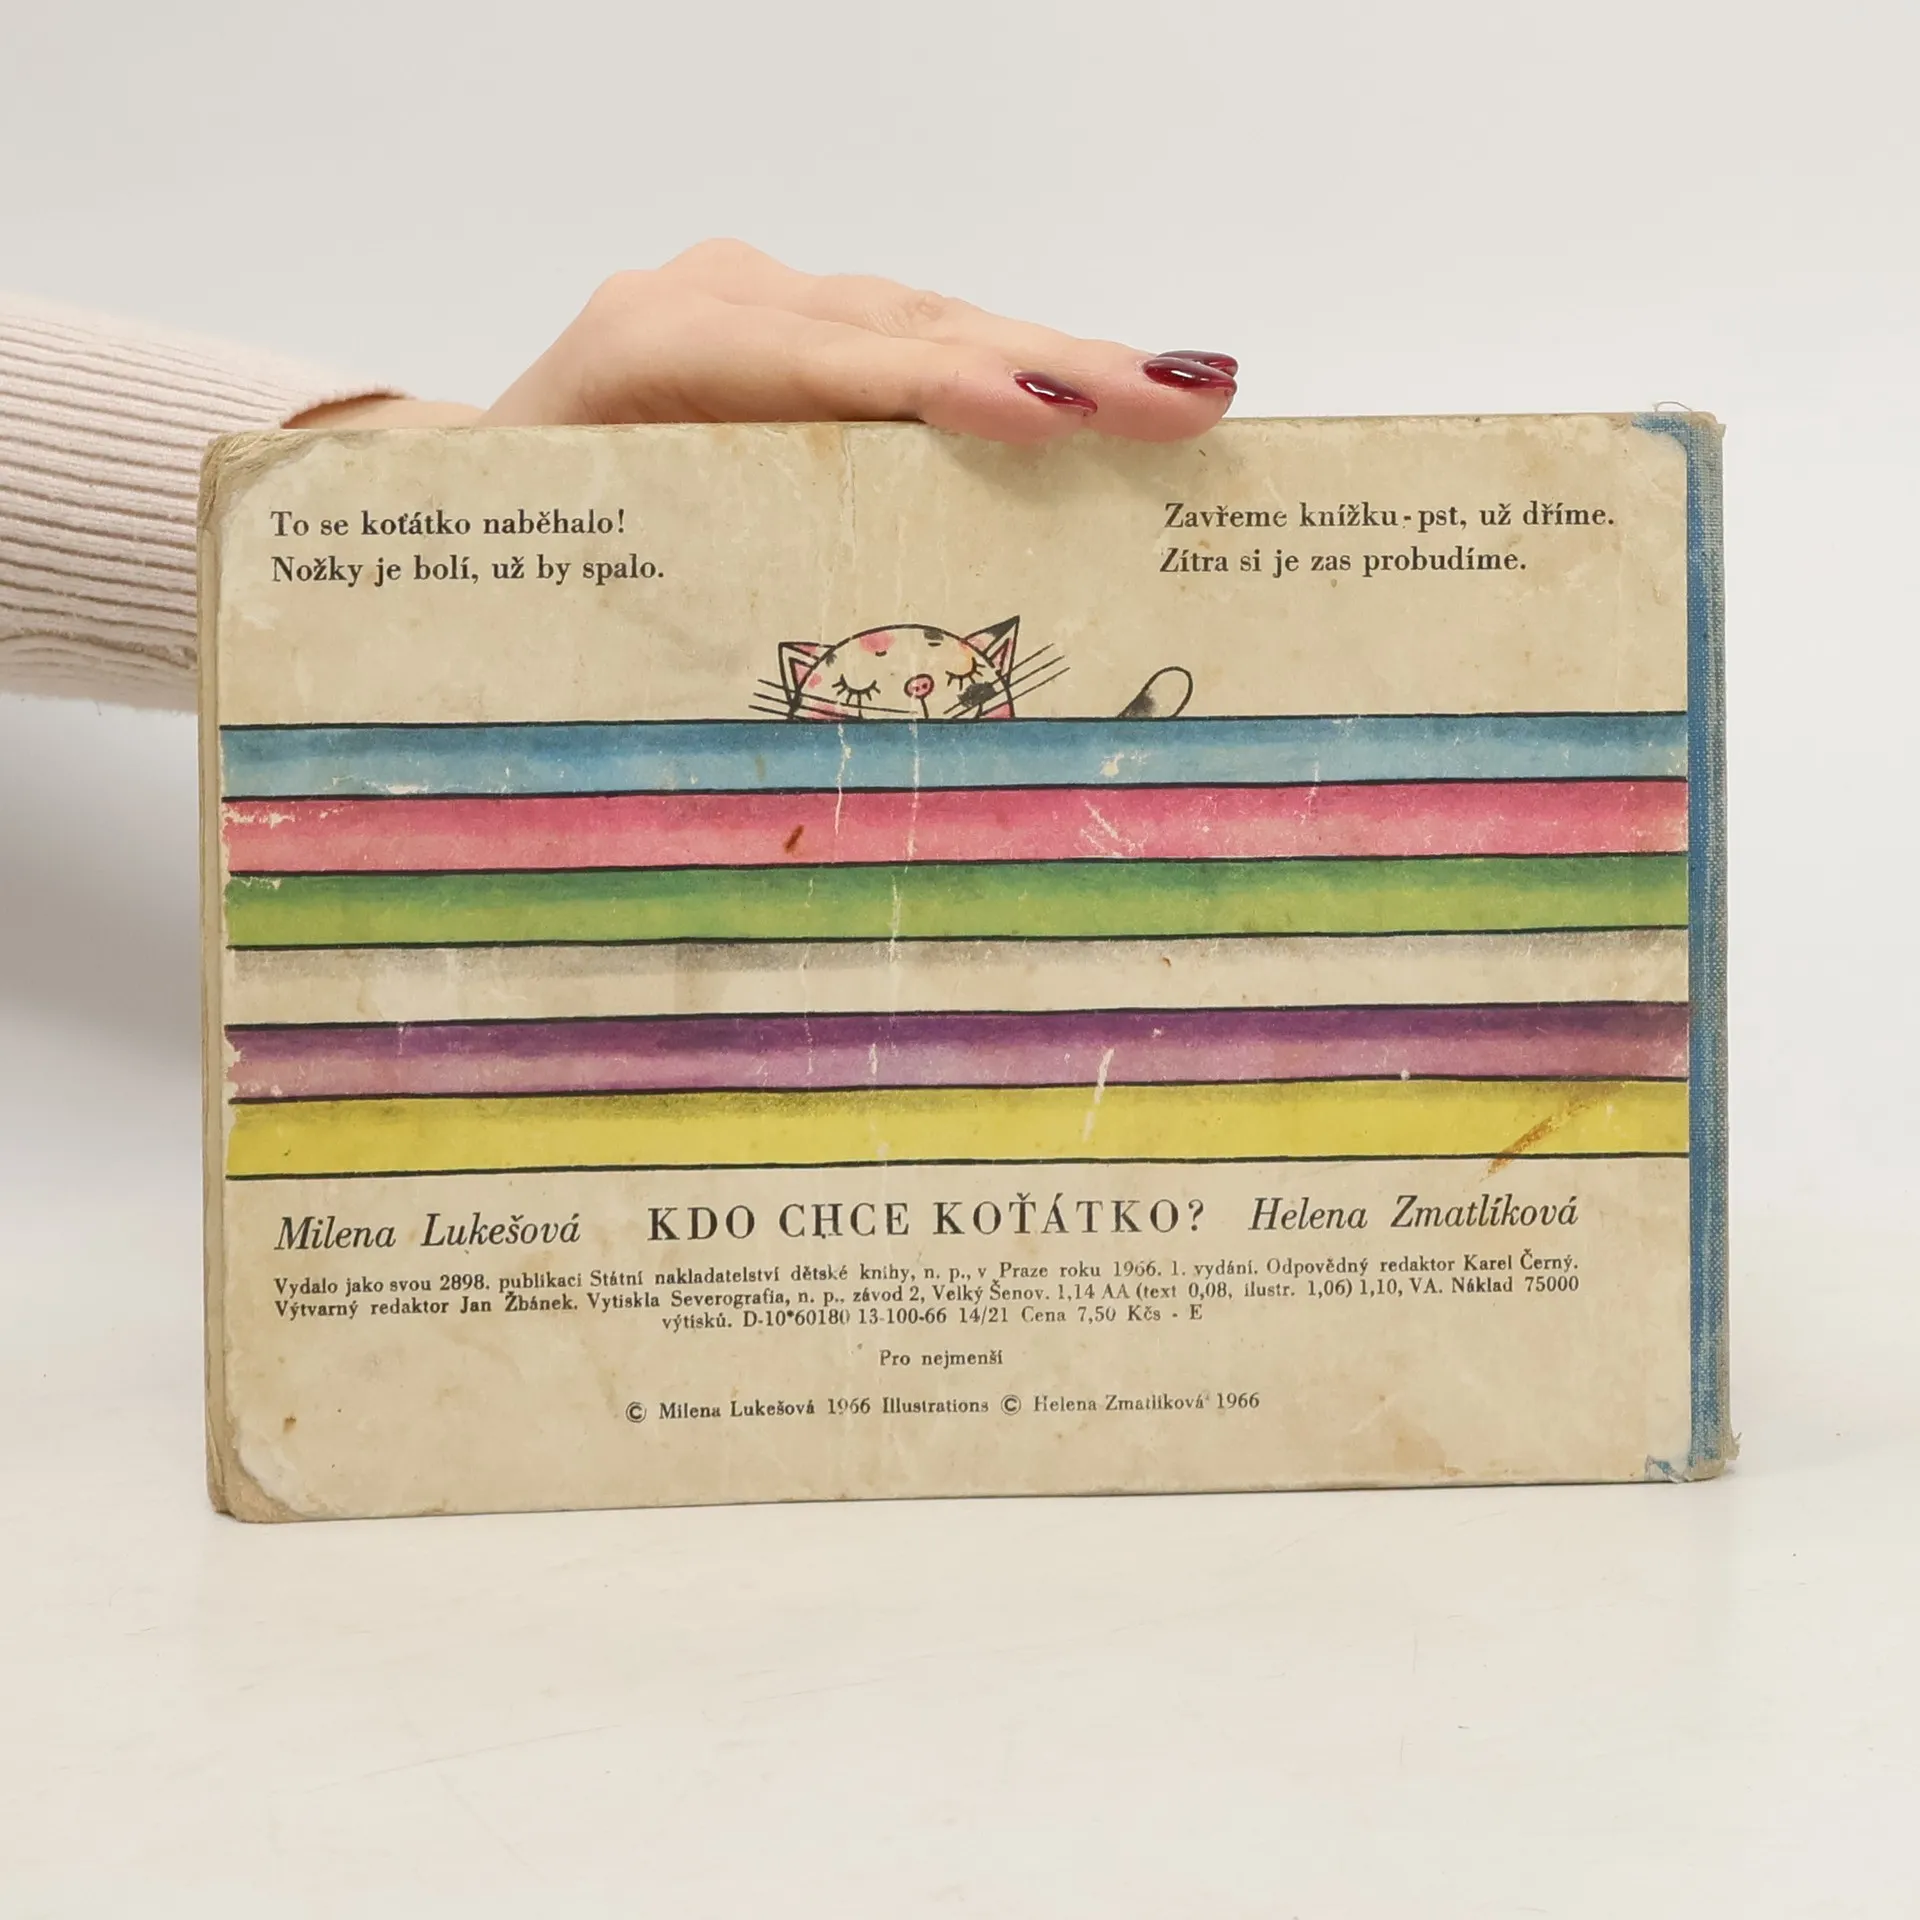 To se koťátko naběhalo!
Nožky je bolí, už by spalo.
Zavřeme knížku - pst, už dříme.
Zítra si je zas probudíme.
Milena Lukešová KDO CHCE KOŤÁTKO? Helena Zmatlíková
Vydalo jako svou 2898. publikaci Státní nakladatelství dětské knihy, n. p., v Praze roku 1966. 1. vydání. Odpovědný redaktor Karel Černý.
Výtvarný redaktor Jan Žbánek. Vytiskla Severografia, n. p., závod 2, Velký Šenov. 1,14 AA (text 0,08, ilustr. 1,06) 1,10, VA. Náklad 75000
výtisků. D-10*60180 13-100-66 14/21 Cena 7,50 Kčs - E
Pro nejmenší
© Milena Lukešová 1966 Illustrations © Helena Zmatlíková 1966